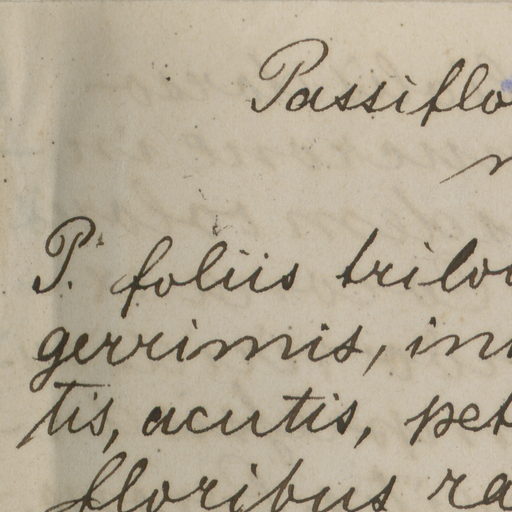 Passiflo
P. foliis trilo
gerrimis, in
tis, acutis, pet
floribus ra